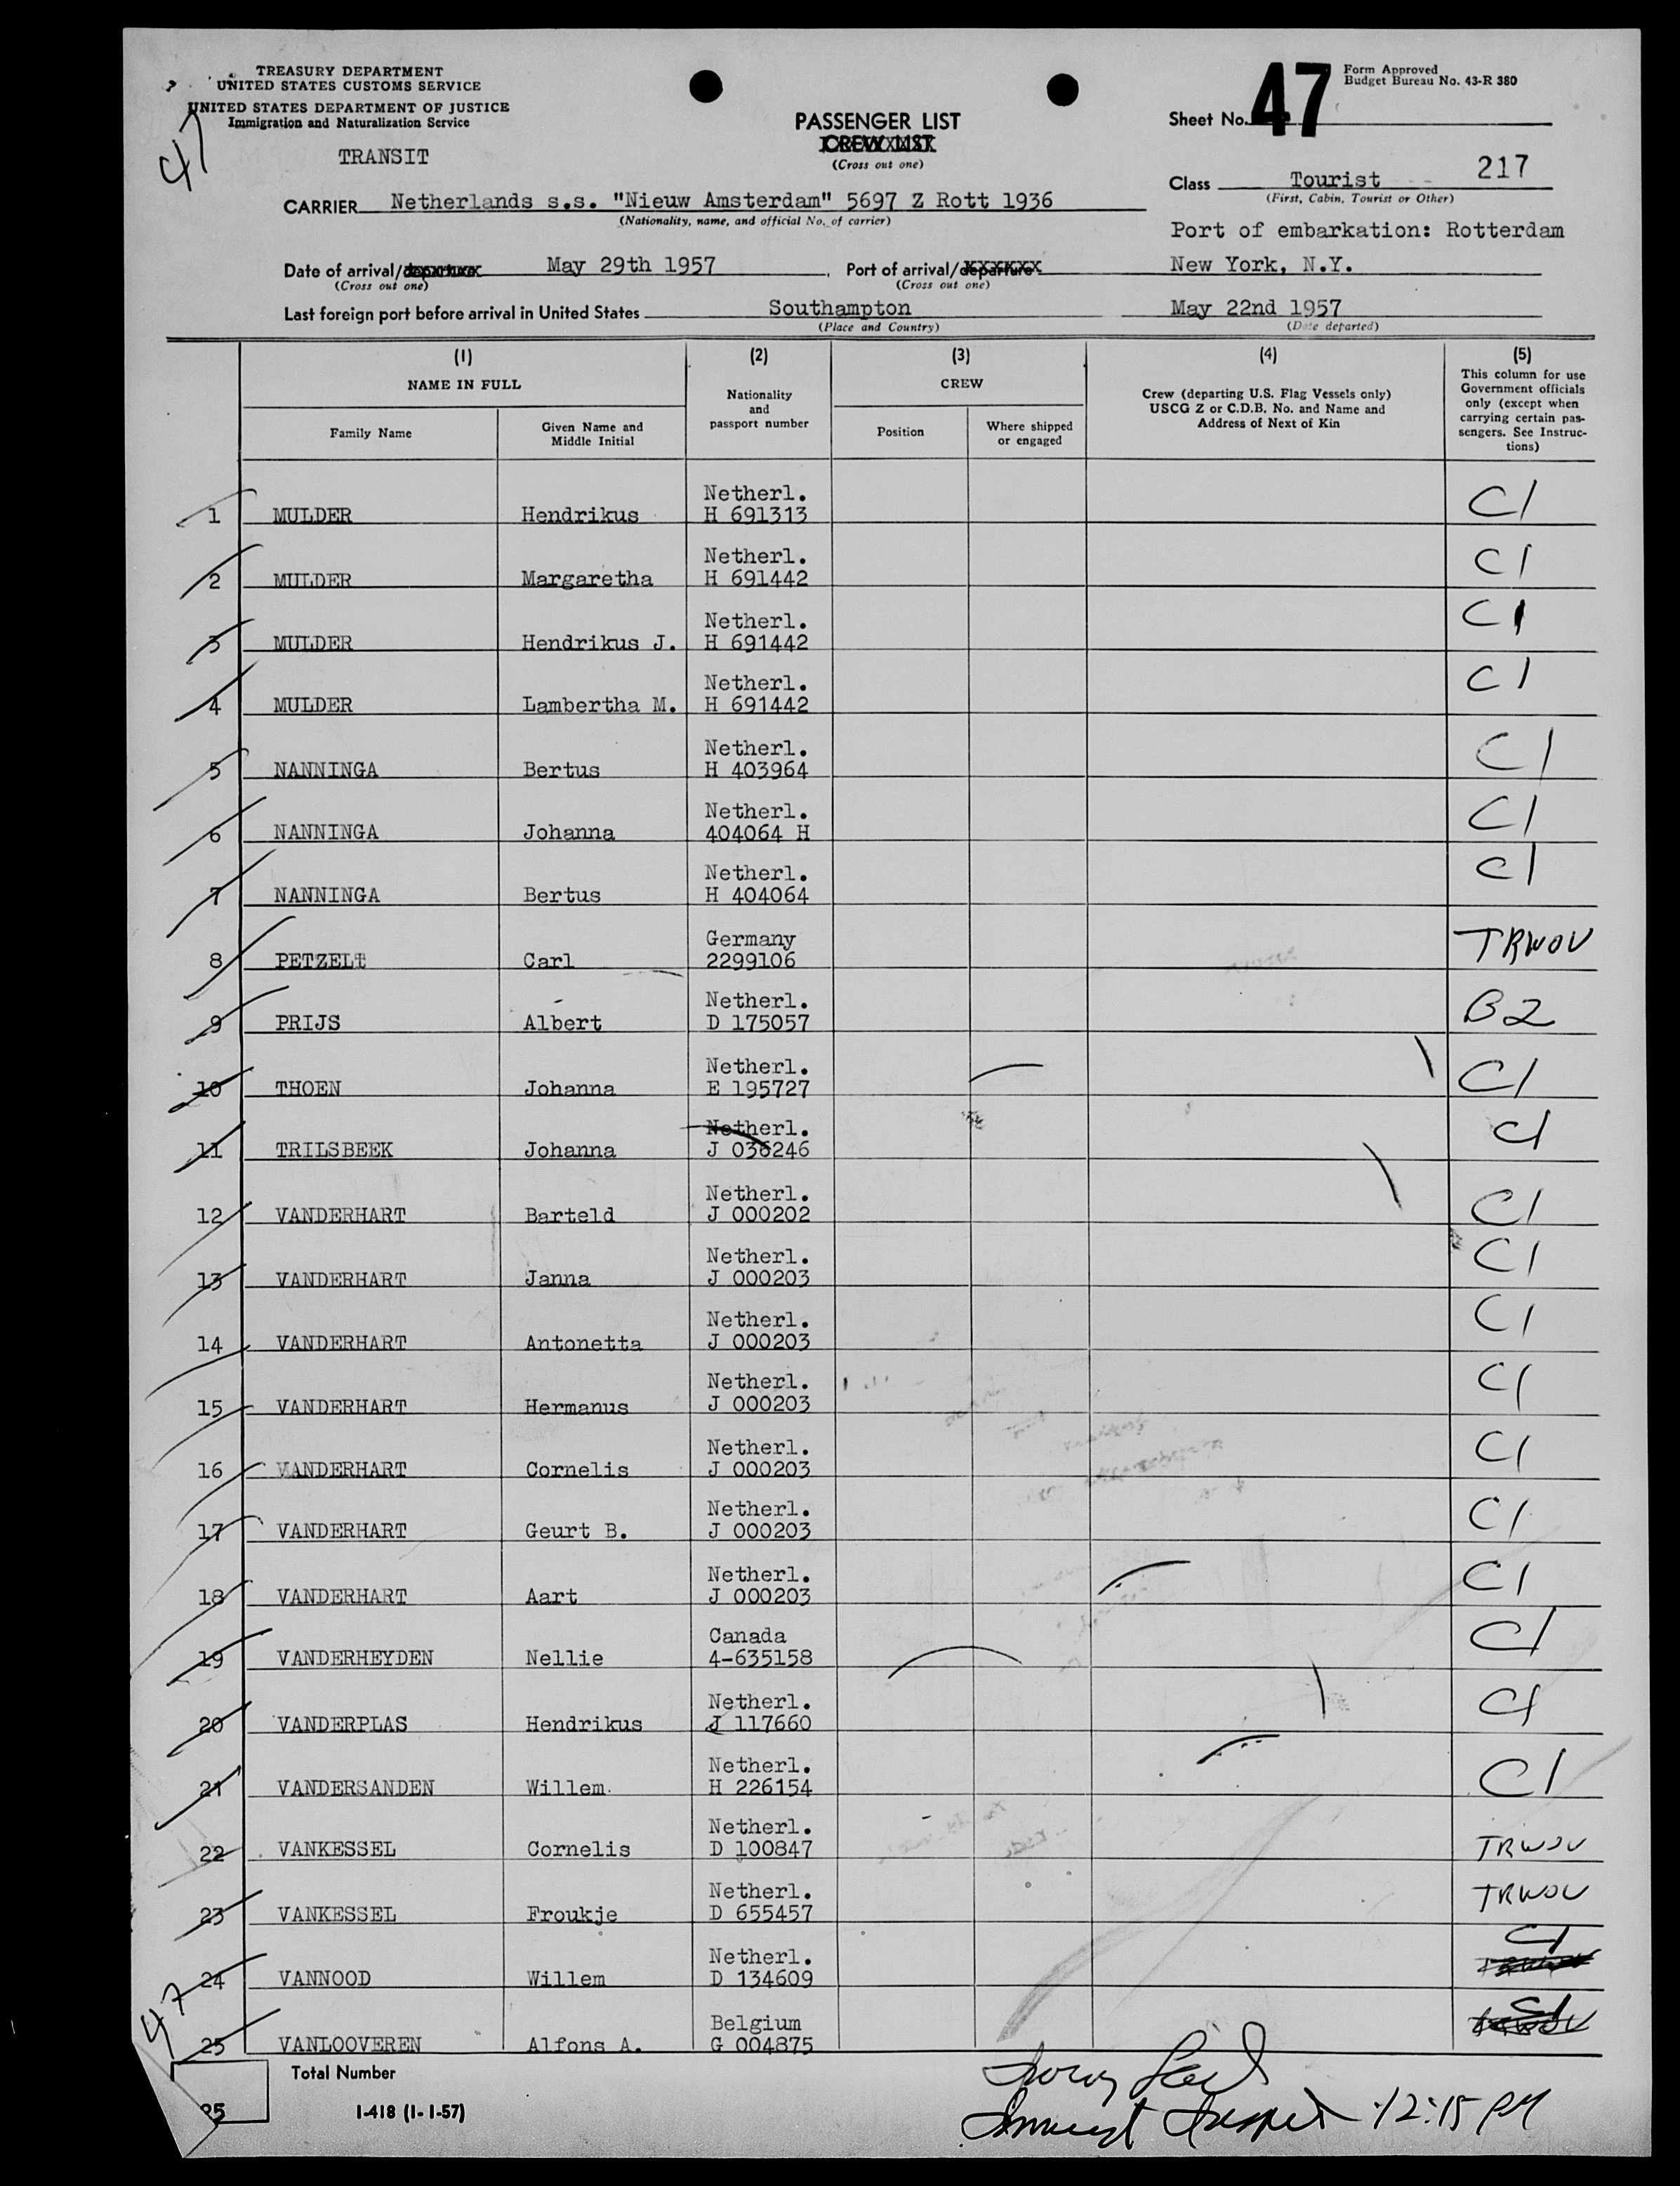 TREASURY DEPARTMENT
UNITED STATES CUSTOMS SERVICE
UNITED STATES DEPARTMENT OF JUSTICE
Immigration and Naturalization Service
47
TRANSIT
PASSENGER LIST
CREW LIST
(Cross out one)
Form Approved
Budget Bureau No. 43-R 380
Sheet No. 47
Class Tourist 217
(First, Cabin, Tourist or Other)
CARRIER Netherlands s.s. "Nieuw Amsterdam" 5697 Z Rott 1936
(Nationality, name, and official No. of carrier)
Port of embarkation: Rotterdam
Date of arrival/departure May 29th 1957, Port of arrival/departure New York, N.Y.
(Cross out one) (Cross out one)
Last foreign port before arrival in United States Southampton May 22nd 1957
(Place and Country) (Date departed)
(1) (2) (3) (4) (5)
NAME IN FULL
Family Name
Given Name and
Middle Initial
Nationality
and
passport number
CREW
Position
Where shipped
or engaged
Crew (departing U.S. Flag Vessels only)
USCG Z or C.D.B. No. and Name and
Address of Next of Kin
This column for use
Government officials
only (except when
carrying certain pas-
sengers. See Instruc-
tions)
1 MULDER Hendrikus Netherl. H 691313 C1
2 MULDER Margaretha Netherl. H 691442 C1
3 MULDER Hendrikus J. Netherl. H 691442 C1
4 MULDER Lambertha M. Netherl. H 691442 C1
5 NANNINGA Bertus Netherl. H 403964 C1
6 NANNINGA Johanna Netherl. 404064 H C1
7 NANNINGA Bertus Netherl. H 404064 C1
8 PETZELt Carl Germany 2299106 TRWOV
9 PRIJS Albert Netherl. D 175057 B2
10 THOEN Johanna Netherl. E 195727 C1
11 TRILSBEEK Johanna Netherl. J 036246 C1
12 VANDERHART Barteld Netherl. J 000202 C1
13 VANDERHART Janna Netherl. J 000203 C1
14 VANDERHART Antonetta Netherl. J 000203 C1
15 VANDERHART Hermanus Netherl. J 000203 C1
16 VANDERHART Cornelis Netherl. J 000203 C1
17 VANDERHART Geurt B. Netherl. J 000203 C1
18 VANDERHART Aart Netherl. J 000203 C1
19 VANDERHEYDEN Nellie Canada 4-635158 C1
20 VANDERPLAS Hendrikus Netherl. J 117660 C1
21 VANDERSANDEN Willem Netherl. H 226154 C1
22 VANKESSEL Cornelis Netherl. D 100847 TRWOV
23 VANKESSEL Froukje Netherl. D 655457 TRWOV
24 VANNOOD Willem Netherl. D 134609 C1
25 VANLOOVEREN Alfons A. Belgium G 004875 C1
47
Total Number
25
I-418 (1-1-57)
12:15 PM